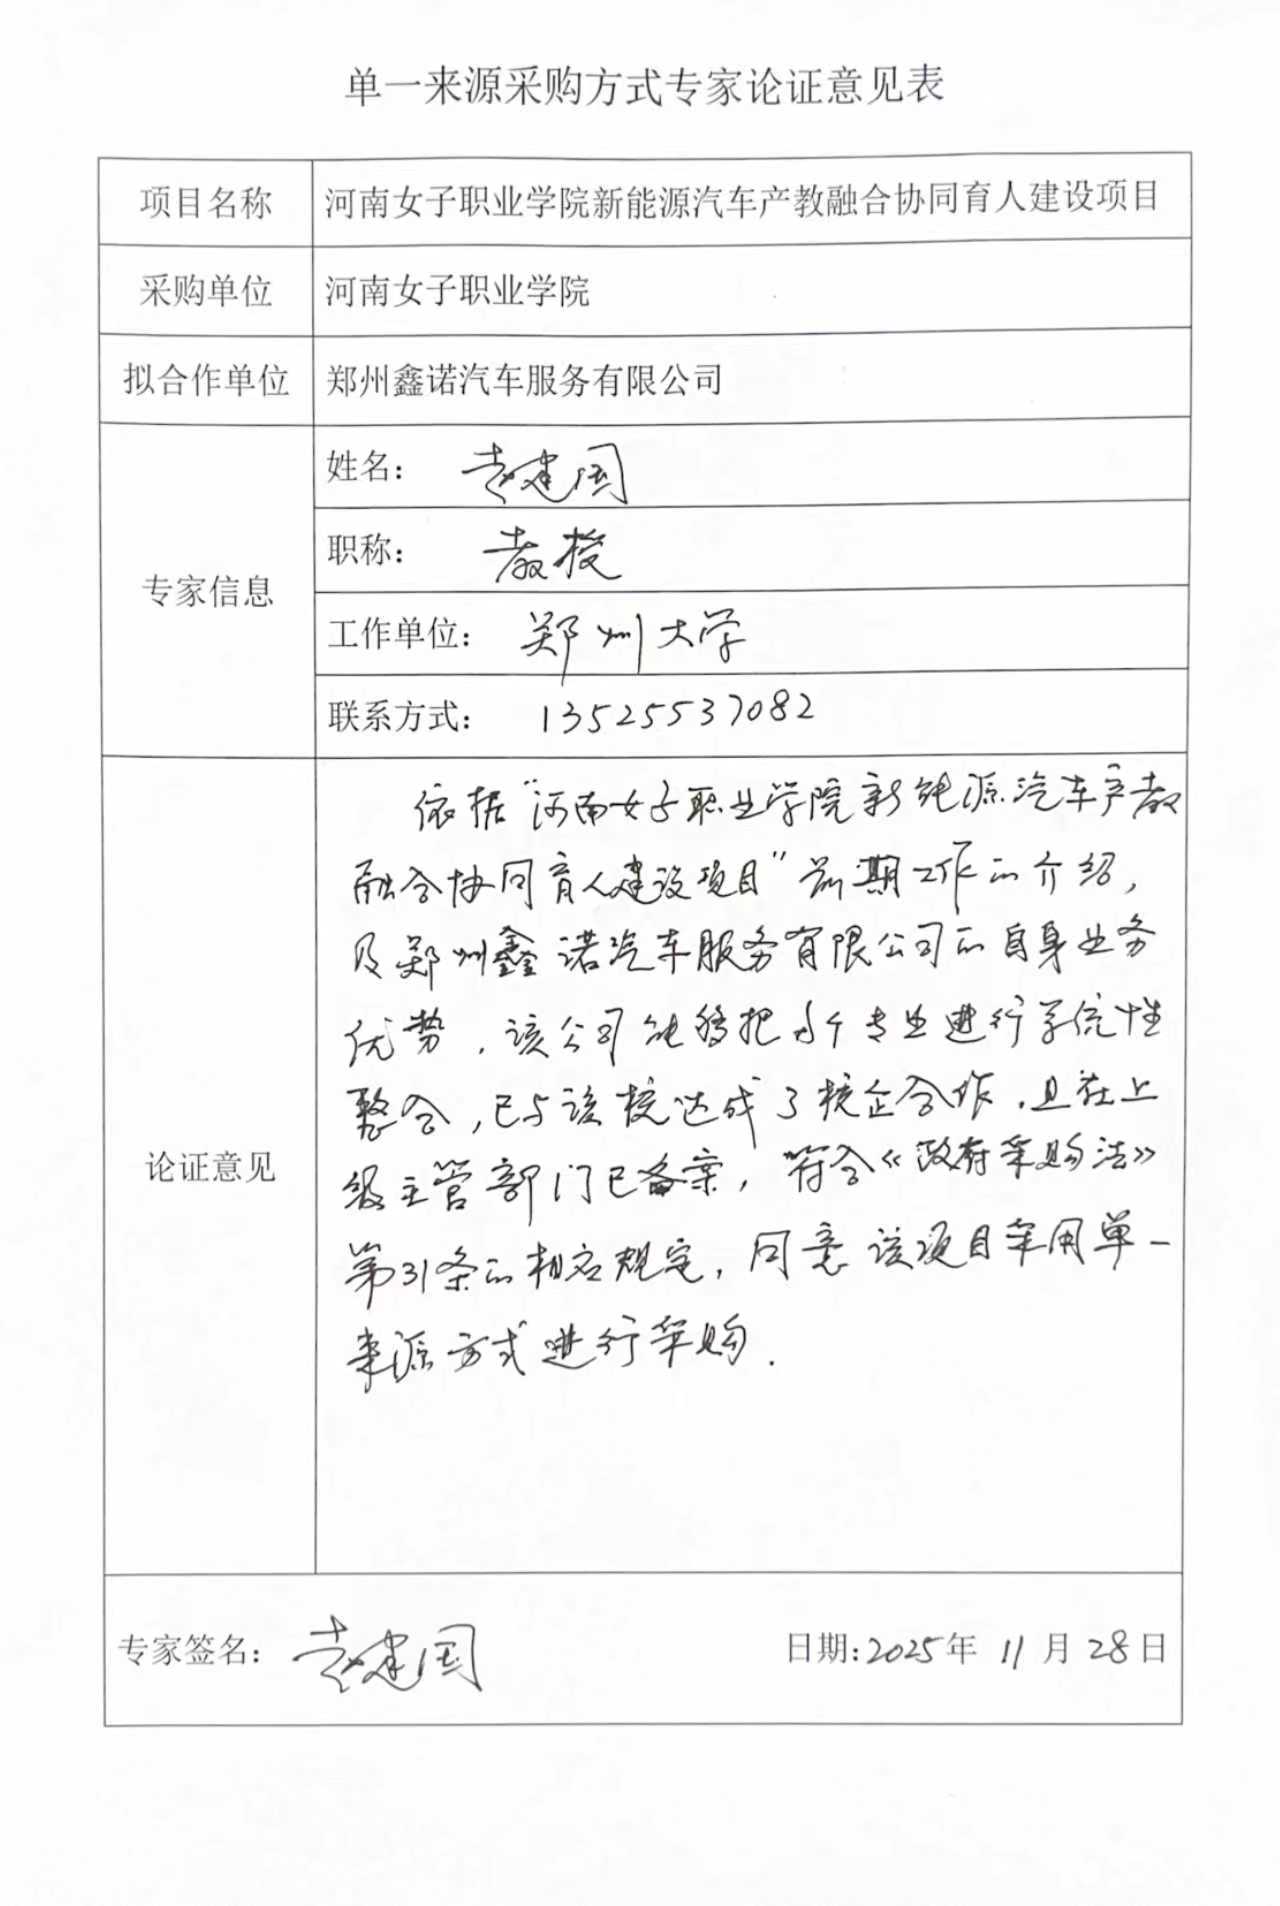 单一来源采购方式专家论证意见表
项目名称 河南女子职业学院新能源汽车产教融合协同育人建设项目
采购单位 河南女子职业学院
拟合作单位 郑州鑫诺汽车服务有限公司
专家信息
姓名: 袁建国
职称: 教授
工作单位: 郑州大学
联系方式: 13525537082
论证意见
依据"河南女子职业学院新能源汽车产教
融合协同育人建设项目"前期工作的介绍,
及郑州鑫诺汽车服务有限公司的自身业务
优势,该公司能够把专业进行系统性
整合,已与该校达成了校企合作,且在上
级主管部门已备案,符合《政府采购法》
第31条的相应规定,同意该项目采用单一
来源方式进行采购.
专家签名: 袁建国 日期:2025年11月28日